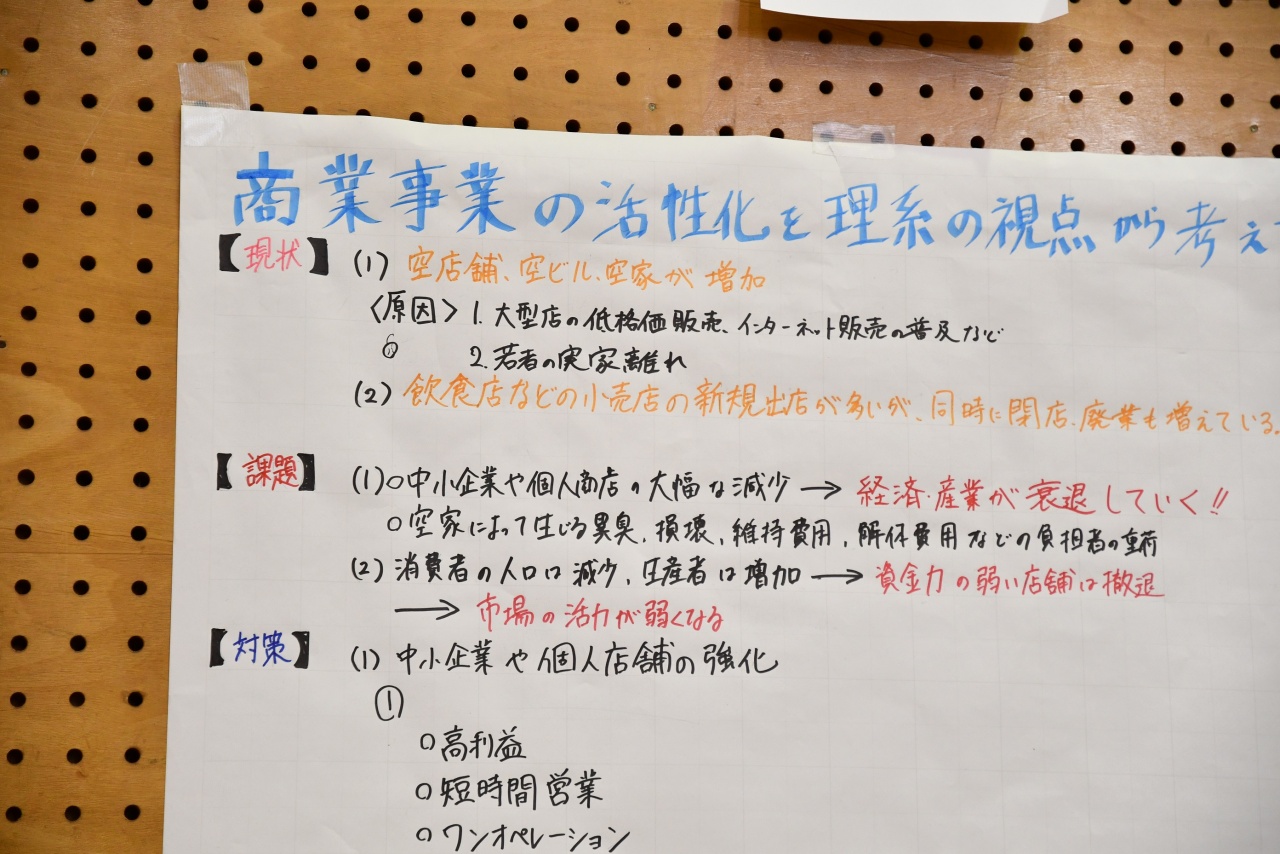 商業事業の活性化を理系の視点から考え
【現状】 (1) 空店舗、空ビル、空家が増加
〈原因〉 1. 大型店の低格価販売、インターネット販売の普及など
2. 若者の実家離れ
(2) 飲食店などの小売店の新規出店が多いが、同時に閉店、廃業も増えている。
【課題】 (1)○中小企業や個人商店の大幅な減少 → 経済・産業が衰退していく!!
○空家によって生じる異臭、損壊、維持費用、解体費用などの負担者の重荷
(2) 消費者の人口は減少、生産者は増加 → 資金力の弱い店舗は撤退
→ 市場の活力が弱くなる
【対策】 (1) 中小企業や個人店舗の強化
①
○高利益
○短時間営業
○ワンオペレーション